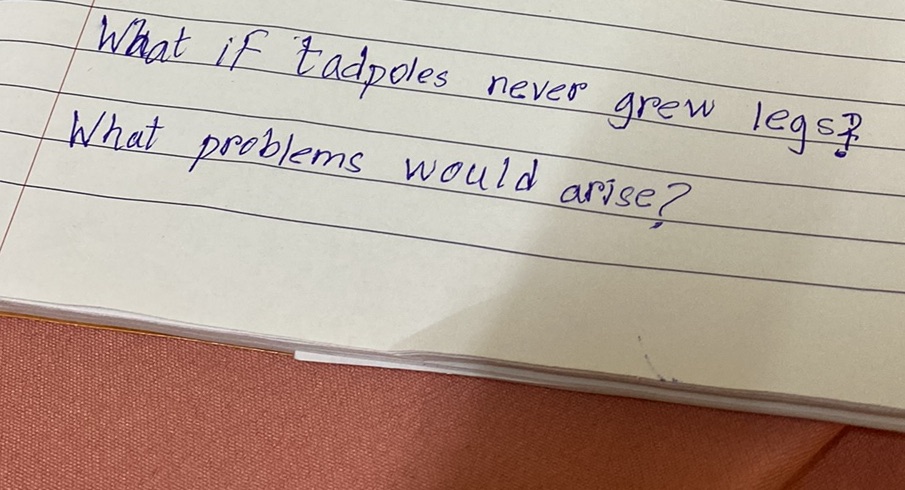 What if tadpoles never grew legs?
What problems would arise?